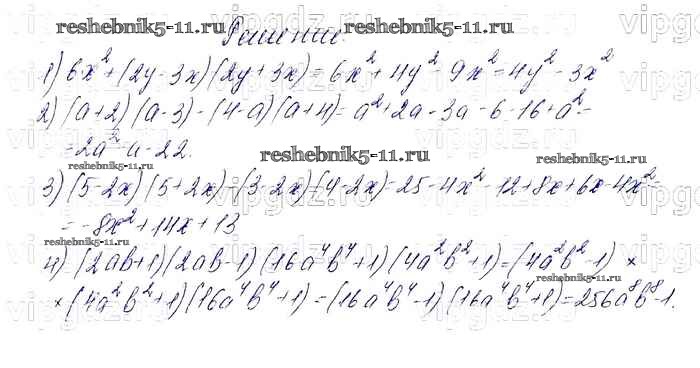 reshebnik5-11.ru reshebnik5-11.ru
Решение.
1) 6x² + (2y - 3x)(2y + 3x) = 6x² + 4y² - 9x² = 4y² - 3x²
2) (a+2)(a-3) - (4-a)(a+4) = a² + 2a - 3a - 6 - 16 + a² =
= 2a² - a - 22.
reshebnik5-11.ru reshebnik5-11.ru reshebnik5-11.ru
3) (5-2x)(5+2x) - (3-2x)(4-2x) = 25 - 4x² - 12 + 8x + 6x - 4x² =
= -8x² + 14x + 13
reshebnik5-11.ru
4) (2ab+1)(2ab-1)(16a⁴b⁴+1)(4a²b²+1) = (4a²b²-1) ×
reshebnik5-11.ru
× (4a²b²+1)(16a⁴b⁴+1) = (16a⁴b⁴-1)(16a⁴b⁴+1) = 256a⁸b⁸-1.